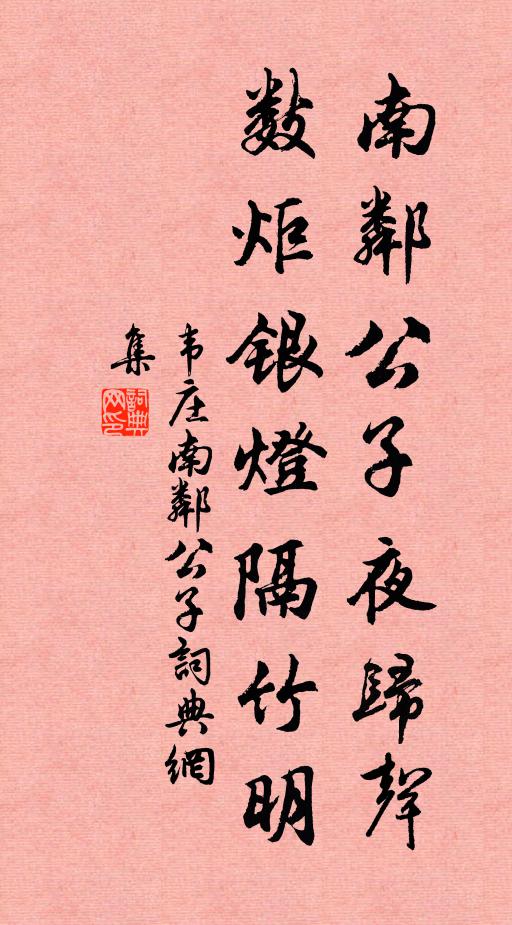 南鄰公子夜歸聲
数炬銀燈隔竹明
韦庄南鄰公子詞典網
集
詞典网印